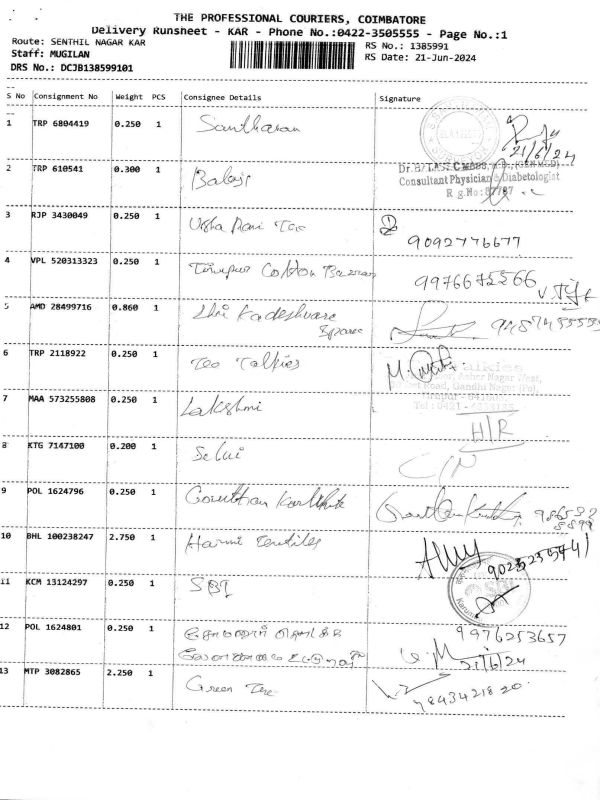 THE PROFESSIONAL COURIERS, COIMBATORE
Delivery Runsheet - KAR - Phone No.:0422-3505555 - Page No.:1
Route: SENTHIL NAGAR KAR
RS No.: 1385991
Staff: MUGILAN
RS Date: 21-Jun-2024
DRS No.: DCJB138599101
S No Consignment No Weight PCS Consignee Details Signature
1 TRP 6804419 0.250 1 Santharam
21/6/24
2 TRP 610541 0.300 1 Balaji
Consultant Physician & Diabetologist
3 RJP 3430049 0.250 1 Usha Rani Tex
9092776677
4 VPL 520313323 0.250 1 Tirupur Cotton Bazaar
9976672566
5 AMD 28499716 0.860 1 Shri Kadeshvare
6 TRP 2118922 0.250 1 Teo Talkies
7 MAA 573255808 0.250 1 Lakshmi
H/R
8 KTG 7147100 0.200 1 Selvi
C/N
9 POL 1624796 0.250 1 Gowtham Karthik
10 BHL 100238247 2.750 1 Harini Textiles
11 KCM 13124297 0.250 1 SBI
12 POL 1624801 0.250 1
9976253657
21/6/24
13 MTP 3082865 2.250 1 Green Tree
9843421820